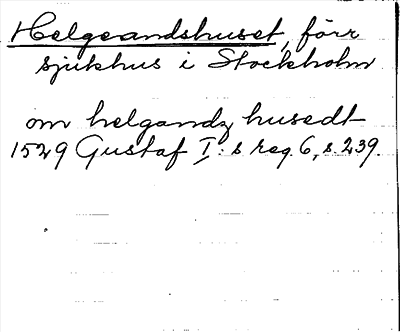 Helgeandshuset, förr
sjukhus i Stockholm
om helgandz husedt
1529 Gustaf I:s reg. 6, s. 239.